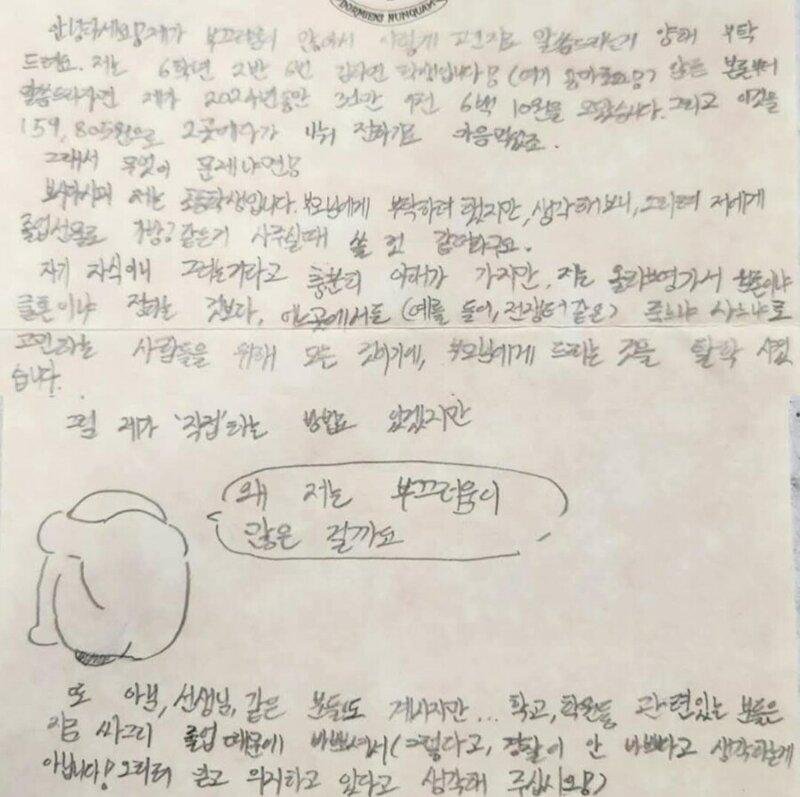 DORMIENS NUNQUAM
안녕하세요 제가 부끄러움이 많아서 이렇게 말씀드리는거 양해 부탁
드려요. 저는 6학년 2반 6번 학생입니다 본론부터
말씀드리자면 제가 2024년동안 6백 10원을 모았습니다. 그리고 이것을
159,805원으로 2곳에다가 나눠 전하기로 마음먹었죠.
그래서 무엇이 문제냐면
보시다시피 저는 초등학생입니다. 부모님에게 부탁하려 했지만, 생각해보니, 그러면 저에게
졸업선물로 가방같은거 사주실때 쓸 것 같더라구요.
자기 자식이니 그러는거라고 충분히 이해가 가지만, 저는 올리브영가서
전하는 것보다, 먼곳에서든 (예를 들어, 전쟁터같은) 죽느냐 사느냐로
고민하는 사람들을 위해 모은 것이기에, 부모님에게 드리는 것을 탈락 시켰
습니다.
그럼 제가 '직접'하는 방법도 있겠지만
왜 저는 부끄러움이
많은 걸까요
또 이모, 선생님, 같은 분들도 계시지만... 학교, 학원등 관련있는 분들은
지금 싸그리 졸업때문에 바쁘셔서 (그렇다고, 경찰이 안 바쁘다고 생각하는게
아닙니다! 그러니 믿고 의지하고 있다고 생각해 주십시오)